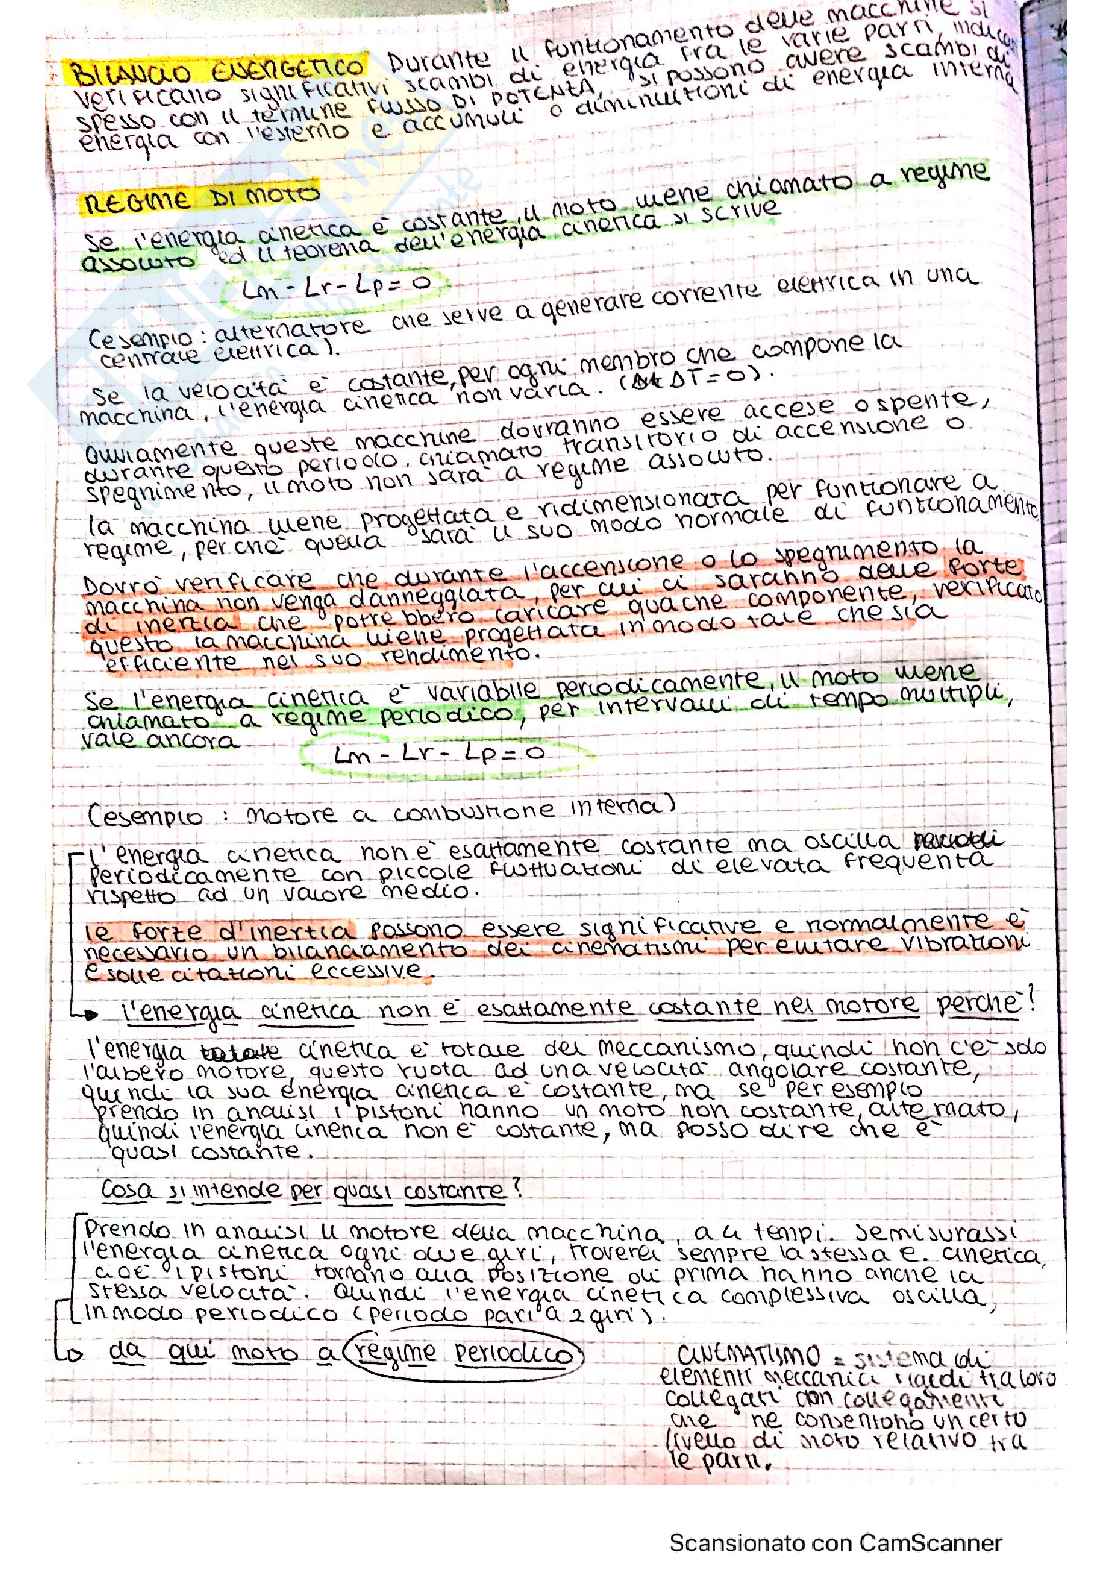 BILANCIO ENERGETICO Durante il funzionamento delle macchine si
verificano significativi scambi di energia fra le varie parti, indicati
spesso con il termine FLUSSO DI POTENZA, si possono avere scambi di
energia con l'esterno e accumuli o diminuzioni di energia interna
REGIME DI MOTO
Se l'energia cinetica è costante, il moto viene chiamato a regime
assoluto ed il teorema dell'energia cinetica si scrive
Lm - Lr - Lp = 0
(esempio : alternatore che serve a generare corrente elettrica in una
centrale elettrica).
Se la velocità è costante, per ogni membro che compone la
macchina, l'energia cinetica non varia. (ΔT = 0).
Ovviamente queste macchine dovranno essere accese o spente,
durante questo periodo, chiamato transitorio di accensione o
spegnimento, il moto non sarà a regime assoluto.
la macchina viene progettata e ridimensionata per funzionare a
regime, perchè quella sarà il suo modo normale di funzionamento
Dovrò verificare che durante l'accensione o lo spegnimento la
macchina non venga danneggiata, per cui ci saranno delle forze
di inerzia che potrebbero caricare qualche componente, verificato
questo la macchina viene progettata in modo tale che sia
efficiente nel suo rendimento.
Se l'energia cinetica è variabile periodicamente, il moto viene
chiamato a regime periodico, per intervalli di tempo multipli,
vale ancora
Lm - Lr - Lp = 0
(esempio : motore a combustione interna)
l'energia cinetica non è esattamente costante ma oscilla
periodicamente con piccole fluttuazioni di elevata frequenza
rispetto ad un valore medio.
le forze d'inerzia possono essere significative e normalmente è
necessario un bilanciamento dei cinematismi per evitare vibrazioni
e sollecitazioni eccessive.
l'energia cinetica non è esattamente costante nel motore perchè?
l'energia cinetica è totale del meccanismo, quindi non c'è solo
l'albero motore, questo ruota ad una velocità angolare costante,
quindi la sua energia cinetica è costante, ma se per esempio
prendo in analisi i pistoni hanno un moto non costante, alternato,
quindi l'energia cinetica non è costante, ma posso dire che è
quasi costante.
Cosa si intende per quasi costante?
Prendo in analisi il motore della macchina, a 4 tempi. se misurassi
l'energia cinetica ogni due giri, troverei sempre la stessa e. cinetica,
cioè i pistoni tornano alla posizione di prima hanno anche la
stessa velocità. Quindi l'energia cinetica complessiva oscilla,
in modo periodico (periodo pari a 2 giri).
da qui moto a regime periodico
CINEMATISMO = sistema di
elementi meccanici rigidi tra loro
collegati con collegamenti
che ne consentono un certo
livello di moto relativo tra
le parti.
Scansionato con CamScanner